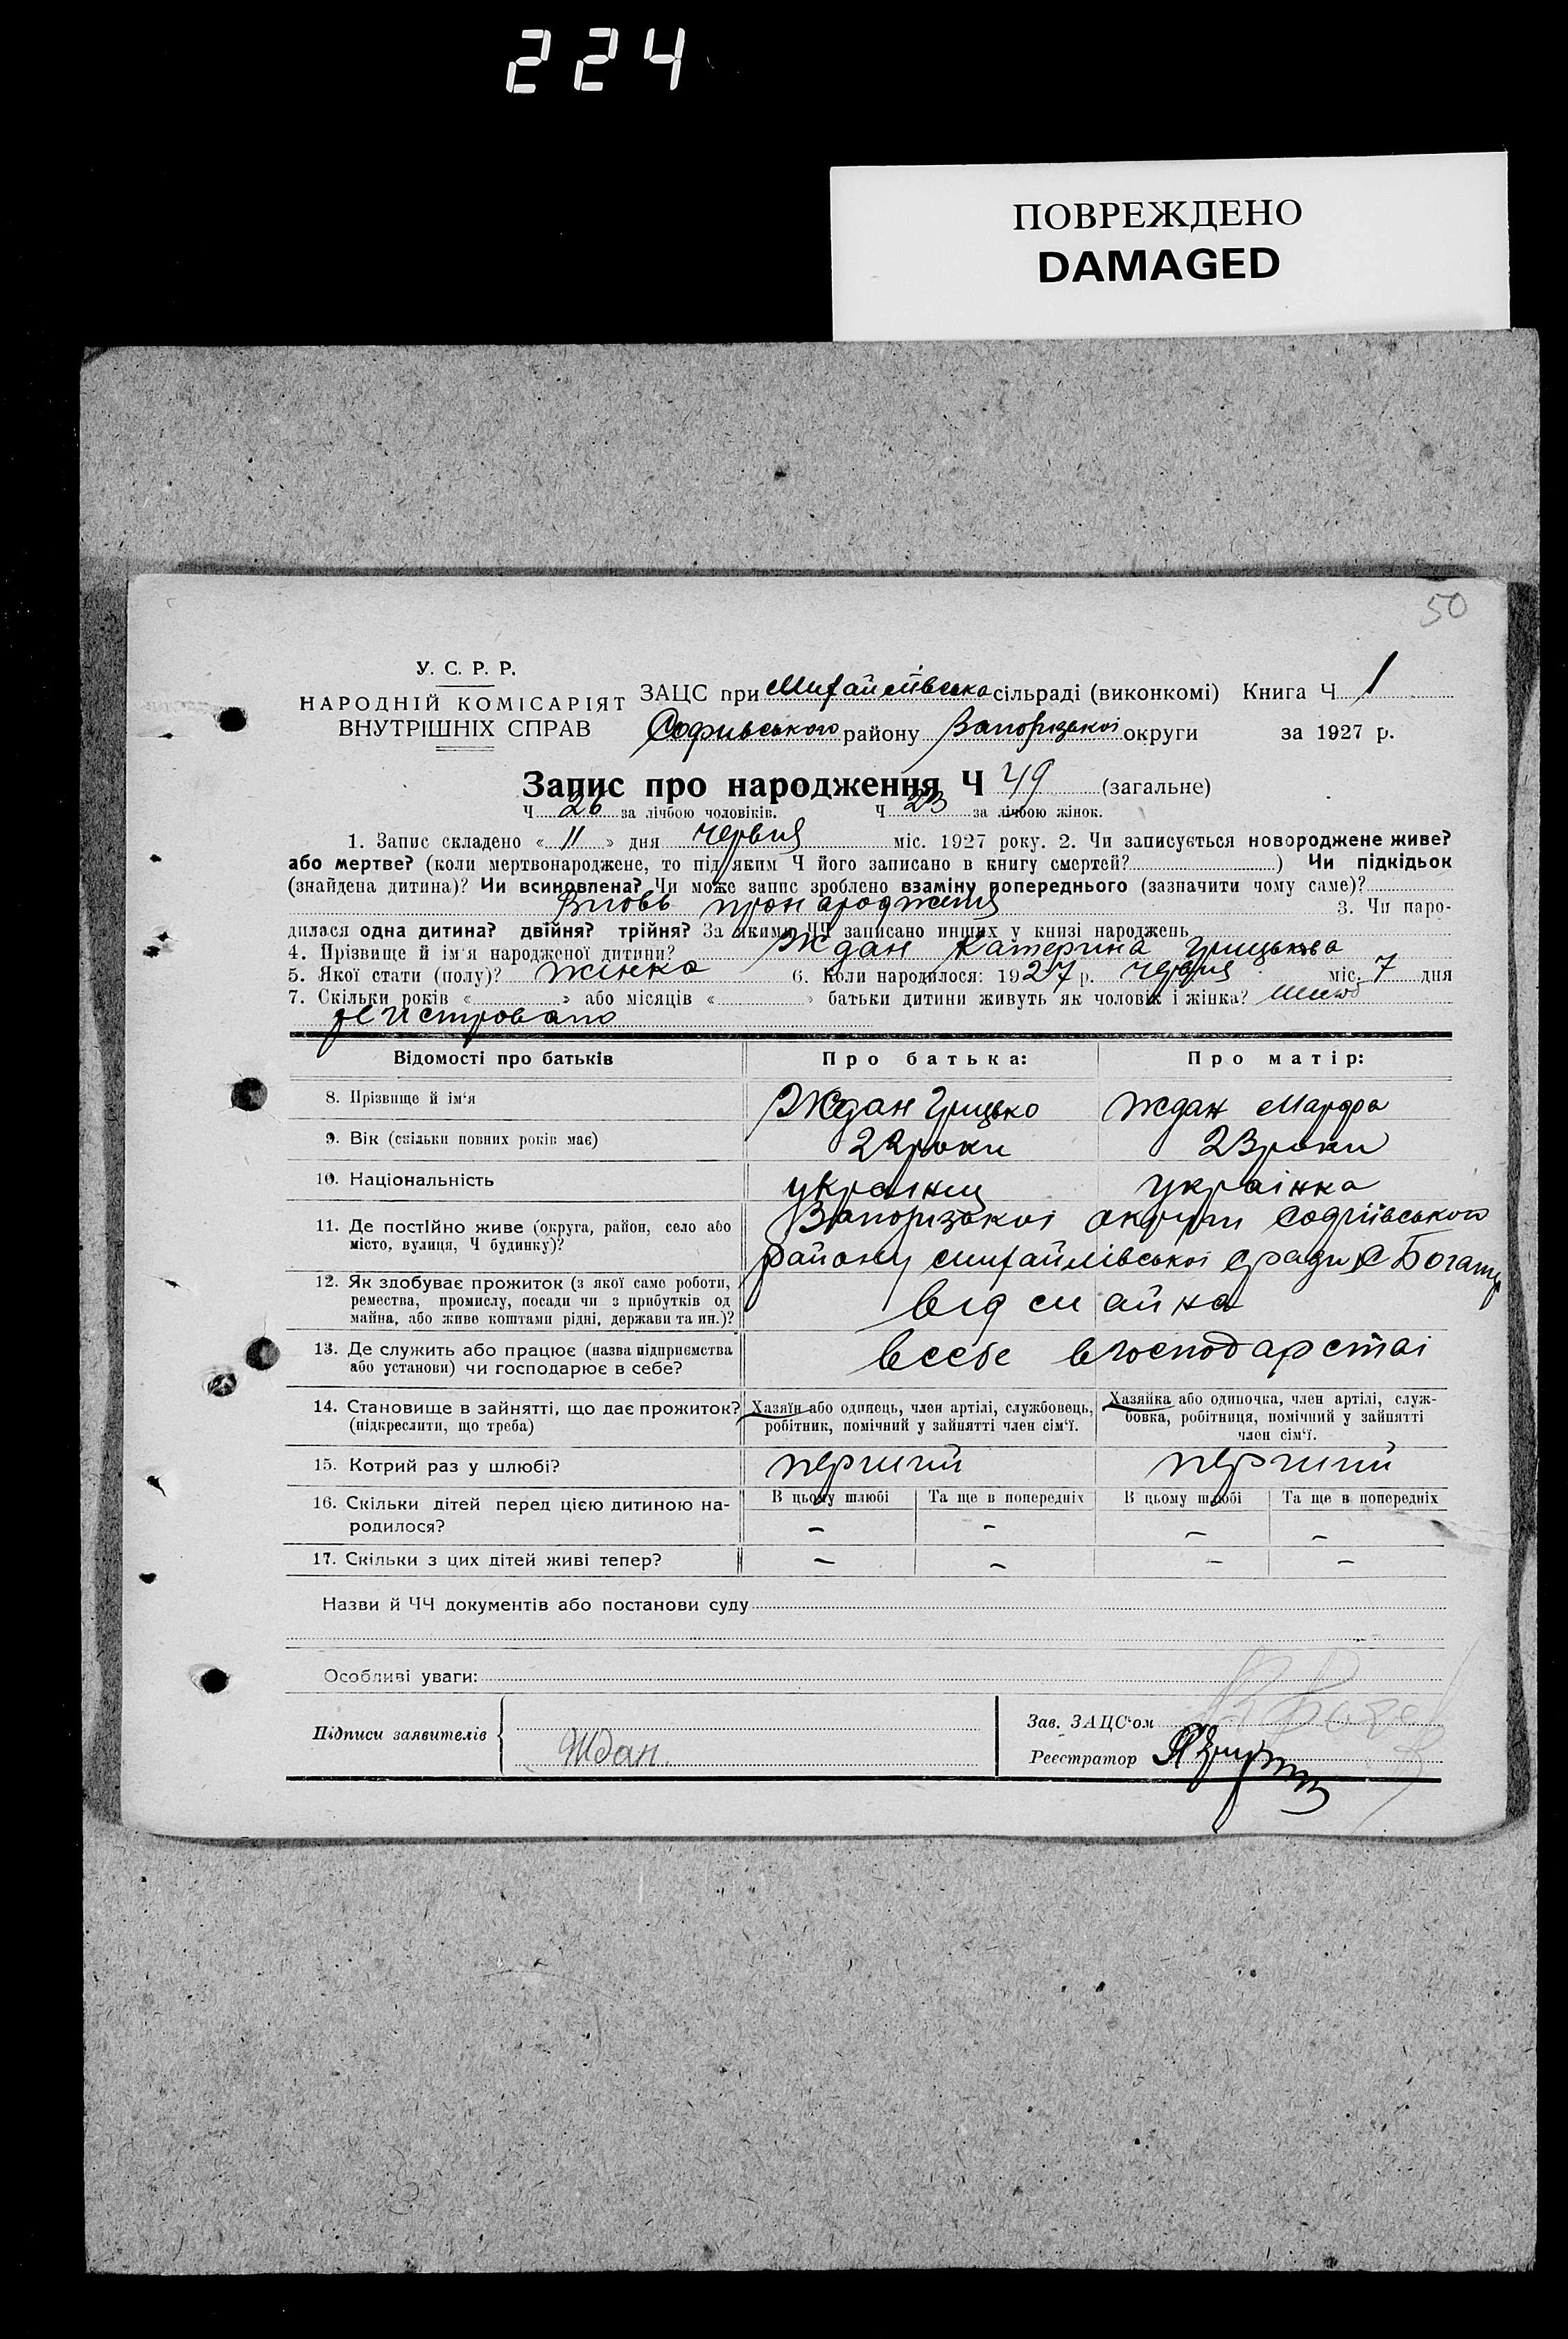 224
ПОВРЕЖДЕНО
DAMAGED
50
У. С. Р. Р.
НАРОДНІЙ КОМІСАРІЯТ
ВНУТРІШНІХ СПРАВ
ЗАЦС при Михайлівська сільраді (виконкомі) Книга Ч 1
Софивського району Запорізької округи за 1927 р.
Запис про народження Ч 49 (загальне)
Ч 26 за лічбою чоловіків. Ч 23 за лічбою жінок.
1. Запис складено « 11 » дня червня міс. 1927 року. 2. Чи записується новороджене живе?
або мертве? (коли мертвонароджене, то під яким Ч його записано в книгу смертей? ) Чи підкідьок
(знайдена дитина)? Чи всиновлена? Чи може запис зроблено взаміну попереднього (зазначити чому саме)?
Вновь про народження 3. Чи наро-
дилася одна дитина? двійня? трійня? За якими ЧЧ записано инших у книзі народжень
4. Прізвище й ім'я народженої дитини? Ждан Катерина Грицькова
5. Якої стати (полу)? жінка 6. Коли народилося: 1927 р. червня міс. 7 дня
7. Скільки років « » або місяців « » батьки дитини живуть як чоловік і жінка? Шлюб
регистровано
Відомості про батьків Про батька: Про матір:
8. Прізвище й ім'я Ждан Грицько Ждан Марфа
9. Вік (скільки повних років має) 22 роки 23 роки
10. Національність украинец українка
11. Де постійно живе (округа, район, село або Запорізькоі округи Софіївського
місто, вулиця, Ч будинку)? району михайлівськоі сради с Богатир
12. Як здобуває прожиток (з якої саме роботи,
ремества, промислу, посади чи з прибутків од від майна
майна, або живе коштами рідні, держави та ин.)?
13. Де служить або працює (назва підприємства
або установи) чи господарює в себе? всебе вгосподарстві
14. Становище в зайнятті, що дає прожиток? Хазяїн або одинець, член артілі, службовець, Хазяйка або одиночка, член артілі, служ-
(підкреслити, що треба) робітник, помічний у зайнятті член сім'ї. бовка, робітниця, помічний у зайнятті
член сім'ї.
15. Котрий раз у шлюбі? перший перший
16. Скільки дітей перед цією дитиною на- В цьому шлюбі Та ще в попередніх В цьому шлюбі Та ще в попередніх
родилося? – – – –
17. Скільки з цих дітей живі тепер? – – – –
Назви й ЧЧ документів або постанови суду
Особливі уваги:
Підписи заявителів Ждан.
Зав. ЗАЦС'ом
Реєстратор